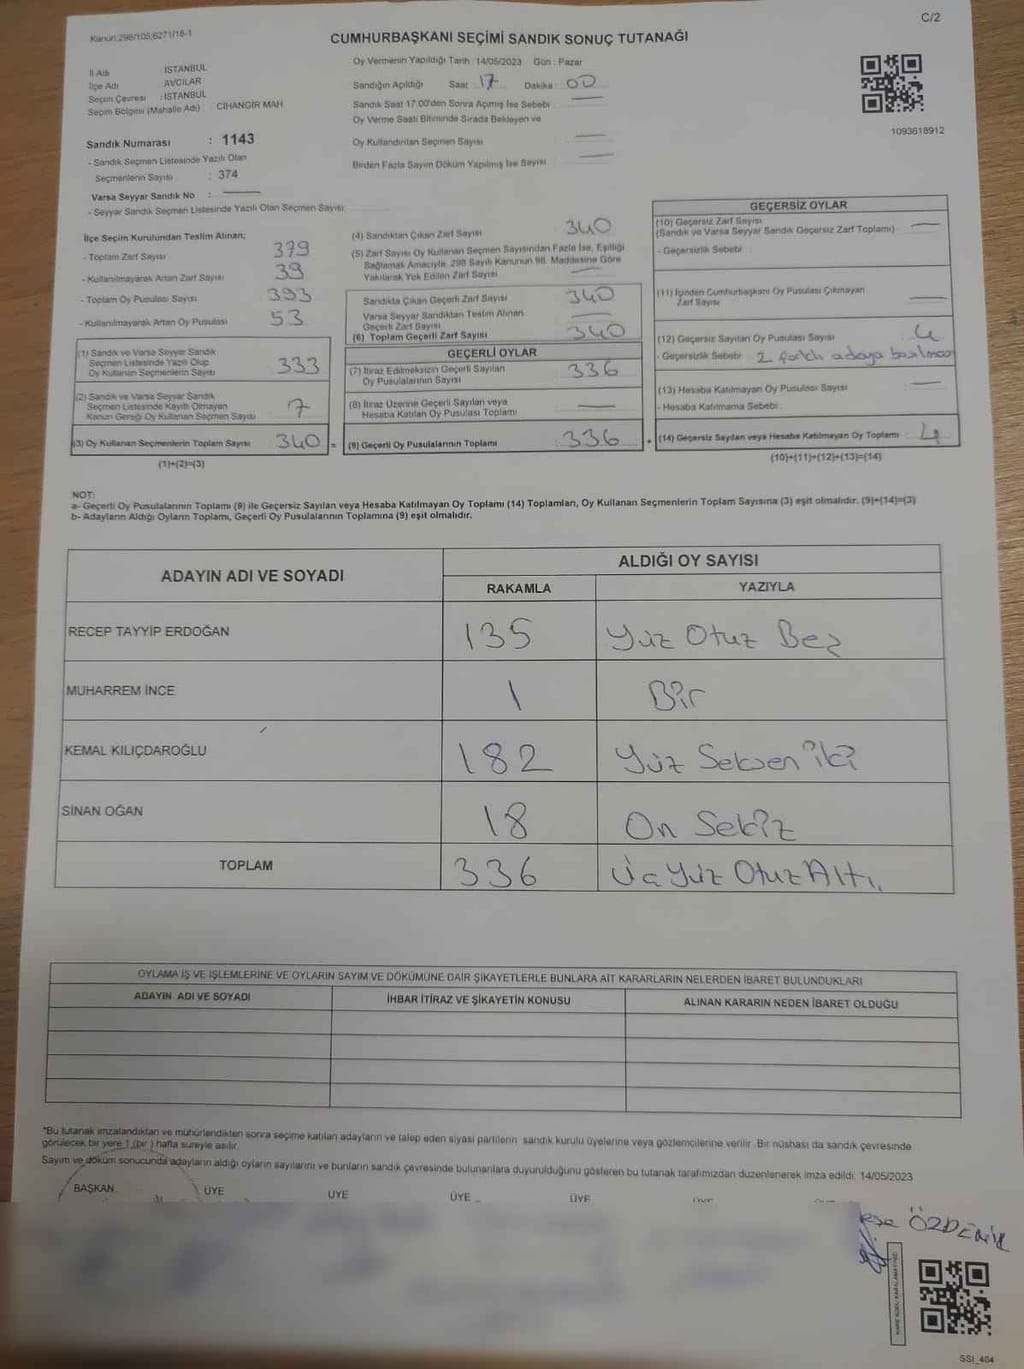 Kanun:298/105;6271/18-1
C/2
CUMHURBAŞKANI SEÇİMİ SANDIK SONUÇ TUTANAĞI
İl Adı : İSTANBUL
İlçe Adı : AVCILAR
Seçim Çevresi : İSTANBUL
Seçim Bölgesi (Mahalle Adı) : CİHANGİR MAH.
Sandık Numarası : 1143
- Sandık Seçmen Listesinde Yazılı Olan
Seçmenlerin Sayısı : 374
Varsa Seyyar Sandık No :
- Seyyar Sandık Seçmen Listesinde Yazılı Olan Seçmen Sayısı:
Oy Vermenin Yapıldığı Tarih : 14/05/2023 Gün : Pazar
Sandığın Açıldığı Saat : 17 Dakika : 00
Sandık Saat 17:00'den Sonra Açımış İse Sebebi :
Oy Verme Saati Bitiminde Sırada Bekleyen ve
Oy Kullandırılan Seçmen Sayısı :
Birden Fazla Sayım Döküm Yapılmış İse Sayısı :
1093618912
İlçe Seçim Kurulundan Teslim Alınan;
- Toplam Zarf Sayısı : 379
- Kullanılmayarak Artan Zarf Sayısı : 39
- Toplam Oy Pusulası Sayısı : 393
- Kullanılmayarak Artan Oy Pusulası : 53
(1) Sandık ve Varsa Seyyar Sandık
Seçmen Listesinde Yazılı Olup
Oy Kullanan Seçmenlerin Sayısı : 333
(2) Sandık ve Varsa Seyyar Sandık
Seçmen Listesinde Kayıtlı Olmayan
Kanun Gereği Oy Kullanan Seçmen Sayısı : 7
(3) Oy Kullanan Seçmenlerin Toplam Sayısı : 340 =
(1)+(2)=(3)
(4) Sandıktan Çıkan Zarf Sayısı : 340
(5) Zarf Sayısı Oy Kullanan Seçmen Sayısından Fazla İse, Eşitliği
Sağlamak Amacıyla, 298 Sayılı Kanunun 98. Maddesine Göre
Yakılarak Yok Edilen Zarf Sayısı :
Sandıkta Çıkan Geçerli Zarf Sayısı : 340
Varsa Seyyar Sandıktan Teslim Alınan
Geçerli Zarf Sayısı :
(6) Toplam Geçerli Zarf Sayısı : 340
GEÇERLİ OYLAR
(7) İtiraz Edilmeksizin Geçerli Sayılan
Oy Pusulalarının Sayısı : 336
(8) İtiraz Üzerine Geçerli Sayılan veya
Hesaba Katılan Oy Pusulası Toplamı :
(9) Geçerli Oy Pusulalarının Toplamı : 336 +
GEÇERSİZ OYLAR
(10) Geçersiz Zarf Sayısı
(Sandık ve Varsa Seyyar Sandık Geçersiz Zarf Toplamı) :
- Geçersizlik Sebebi :
(11) İçinden Cumhurbaşkanı Oy Pusulası Çıkmayan
Zarf Sayısı :
(12) Geçersiz Sayılan Oy Pusulası Sayısı : 4
- Geçersizlik Sebebi : 2 farklı adaya basılması
(13) Hesaba Katılmayan Oy Pusulası Sayısı :
- Hesaba Katılmama Sebebi :
(14) Geçersiz Sayılan veya Hesaba Katılmayan Oy Toplamı : 4
(10)+(11)+(12)+(13)=(14)
NOT:
a- Geçerli Oy Pusulalarının Toplamı (9) ile Geçersiz Sayılan veya Hesaba Katılmayan Oy Toplamı (14) Toplamları, Oy Kullanan Seçmenlerin Toplam Sayısına (3) eşit olmalıdır. (9)+(14)=(3)
b- Adayların Aldığı Oyların Toplamı, Geçerli Oy Pusulalarının Toplamına (9) eşit olmalıdır.
ADAYIN ADI VE SOYADI
ALDIĞI OY SAYISI
RAKAMLA YAZIYLA
RECEP TAYYİP ERDOĞAN 135 Yüz Otuz Beş
MUHARREM İNCE 1 Bir
KEMAL KILIÇDAROĞLU 182 Yüz Seksen iki
SİNAN OĞAN 18 On Sekiz
TOPLAM 336 Üç Yüz Otuz Altı.
OYLAMA İŞ VE İŞLEMLERİNE VE OYLARIN SAYIM VE DÖKÜMÜNE DAİR ŞİKAYETLERLE BUNLARA AİT KARARLARIN NELERDEN İBARET BULUNDUKLARI
ADAYIN ADI VE SOYADI İHBAR İTİRAZ VE ŞİKAYETİN KONUSU ALINAN KARARIN NEDEN İBARET OLDUĞU
*Bu tutanak imzalandıktan ve mühürlendikten sonra seçime katılan adayların ve talep eden siyasi partilerin sandık kurulu üyelerine veya gözlemcilerine verilir. Bir nüshası da sandık çevresinde
görülecek bir yere 1 (bir ) hafta süreyle asılır.
Sayım ve döküm sonucunda adayların aldığı oyların sayılarını ve bunların sandık çevresinde bulunanlara duyurulduğunu gösteren bu tutanak tarafımızdan düzenlenerek imza edildi. 14/05/2023
BAŞKAN ÜYE ÜYE ÜYE ÜYE
ÖZDEMİR
SSİ_404